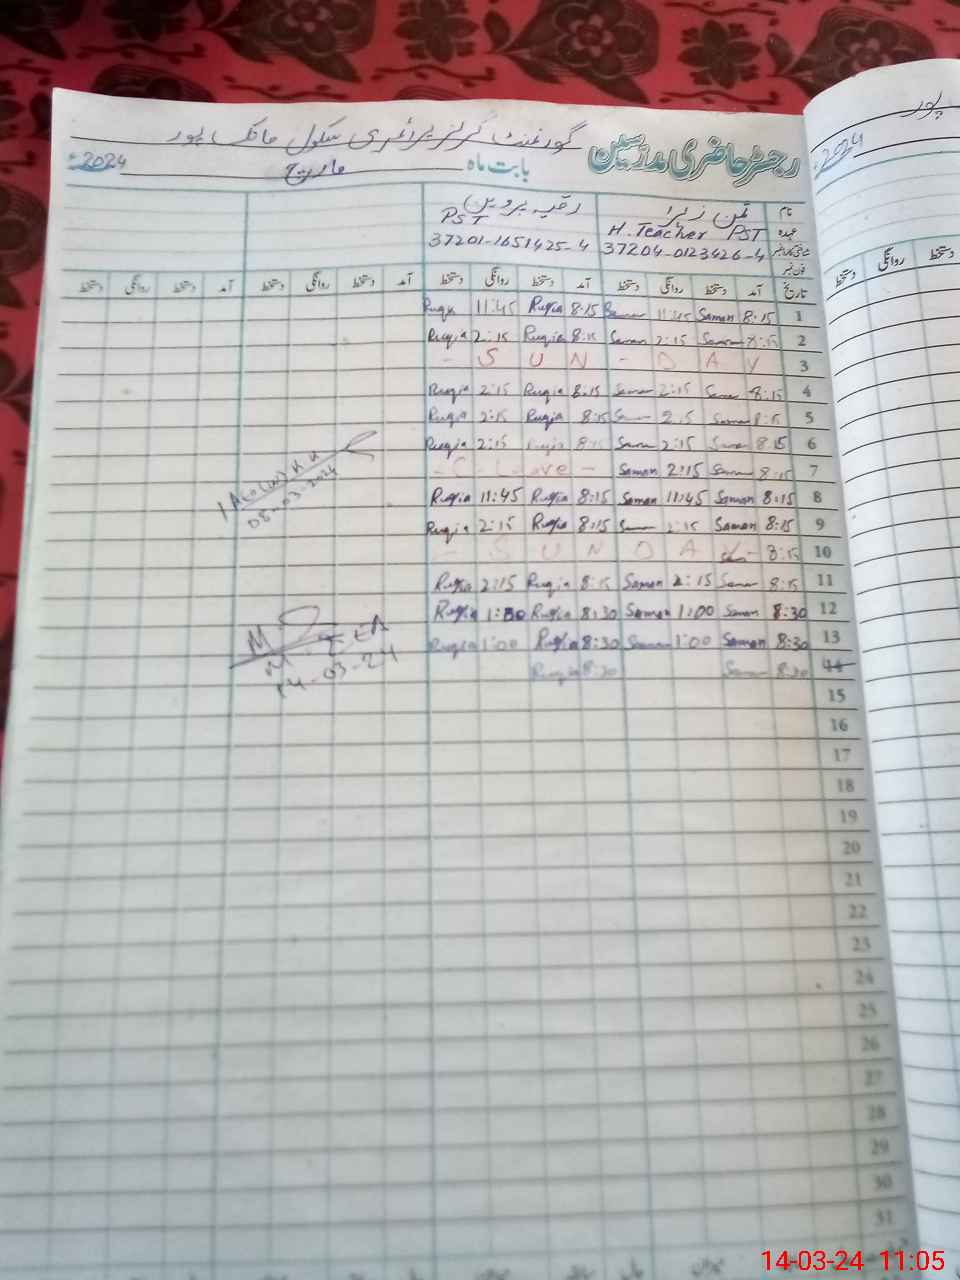 گورنمنٹ گرلز پرائمری سکول مانک پور
رجسٹر حاضری مدرسین
بابت ماہ مارچ 2024ء
نام ثمن زہرا رقیہ پروین
عہدہ H. Teacher PST PST
شناختی کارڈ نمبر 37204-0123426-4 37201-1651425-4
فون نمبر
تاریخ آمد دستخط روانگی دستخط آمد دستخط روانگی دستخط آمد دستخط روانگی دستخط آمد دستخط روانگی دستخط
1 8:15 Saman 11:45 Saman 8:15 Ruqia 11:45
2 8:15 Saman 2:15 Saman 8:15 Ruqia 2:15 Ruqia
3 - SUN - DAY
4 8:15 Saman 2:15 Saman 8:15 Ruqia 2:15 Ruqia
5 8:15 Saman 2:15 Saman 8:15 Ruqia 2:15 Ruqia
6 8:15 Saman 2:15 Saman 8:15 Ruqia 2:15 Ruqia
7 8:15 Saman 2:15 Saman - C - Leave -
8 8:15 Saman 11:45 Saman 8:15 Ruqia 11:45 Ruqia
9 8:15 Saman 2:15 Saman 8:15 Ruqia 2:15 Ruqia
10 - SUNDAY - 8:15
11 8:15 Saman 2:15 Saman 8:15 Ruqia 2:15 Ruqia
12 8:30 Saman 1:00 Saman 8:30 Ruqia 1:00 Ruqia
13 8:30 Saman 1:00 Saman 8:30 Ruqia 1:00 Ruqia
14 8:30 Saman 8:30 Ruqia
15
16
17
18
19
20
21
22
23
24
25
26
27
28
29
30
31
08-03-2024
14-03-24
پور
2024ء
دستخط روانگی دستخط
14-03-24 11:05